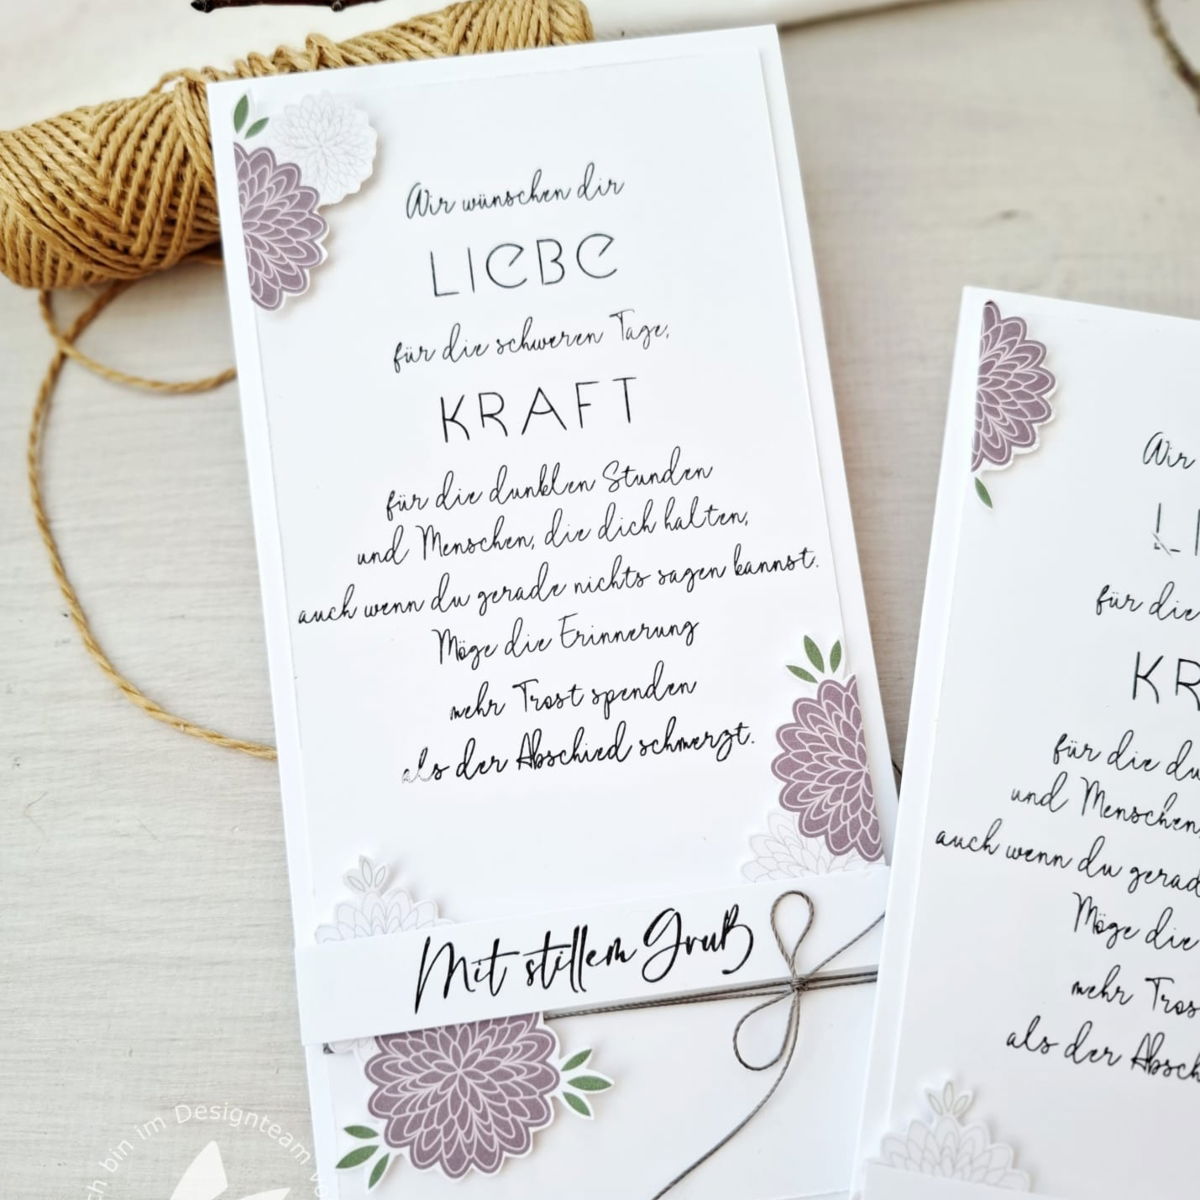 Wir wünschen dir
LIEBE
für die schweren Tage,
KRAFT
für die dunklen Stunden
und Menschen, die dich halten,
auch wenn du gerade nichts sagen kannst.
Möge die Erinnerung
mehr Trost spenden
als der Abschied schmerzt.
Mit stillem Gruß
Wir
LI
für die
KR
für die du
und Menschen,
auch wenn du gerad
Möge die
mehr Tros
als der Absch
ch bin im Designteam